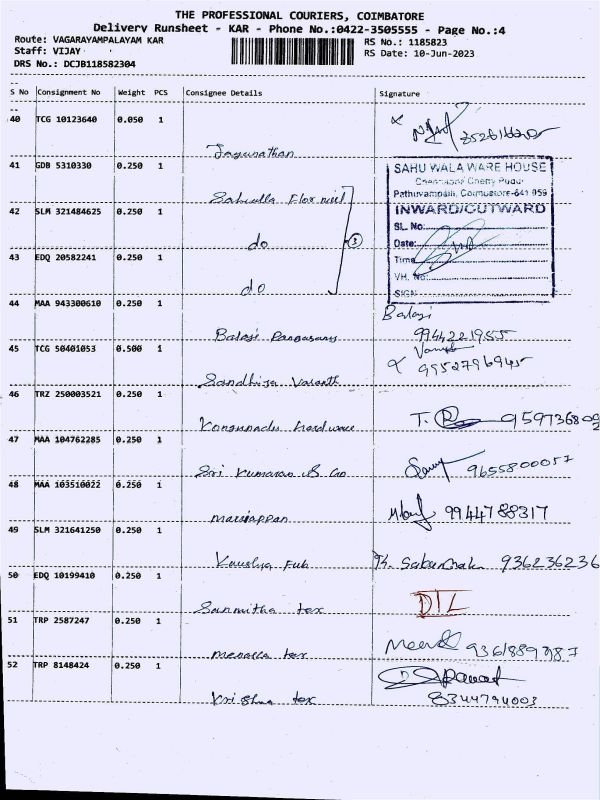 THE PROFESSIONAL COURIERS, COIMBATORE
Delivery Runsheet - KAR - Phone No.:0422-3505555 - Page No.:4
Route: VAGARAYAMPALAYAM KAR RS No.: 1185823
Staff: VIJAY RS Date: 10-Jun-2023
DRS No.: DCJB118582304
S No Consignment No Weight PCS Consignee Details Signature
40 TCG 10123640 0.050 1
Jagunathan
41 GDB 5310330 0.250 1
SAHU WALA WARE HOUSE
Pathuvampalli, Coimbatore-641 059
42 SLM 321484625 0.250 1 INWARD/OUTWARD
SL. No:
do 3 Date:
43 EDQ 20582241 0.250 1 Time
VH. No:
do SIGN
44 MAA 943300610 0.250 1 Balaji
Balaji 9944221955
45 TCG 50401053 0.500 1
9952796945
Vasanth
46 TRZ 250003521 0.250 1
Kongunadu hardware T.
47 MAA 104762285 0.250 1
Sri Kumaran & Co 9655800057
48 MAA 103510022 0.250 1
mariappan 9944788317
49 SLM 321641250 0.250 1
Kaushya Fab 936236236
50 EDQ 10199410 0.250 1
Sanmitha tex DTL
51 TRP 2587247 0.250 1
tex
52 TRP 8148424 0.250 1
Krishna tex 8344794003